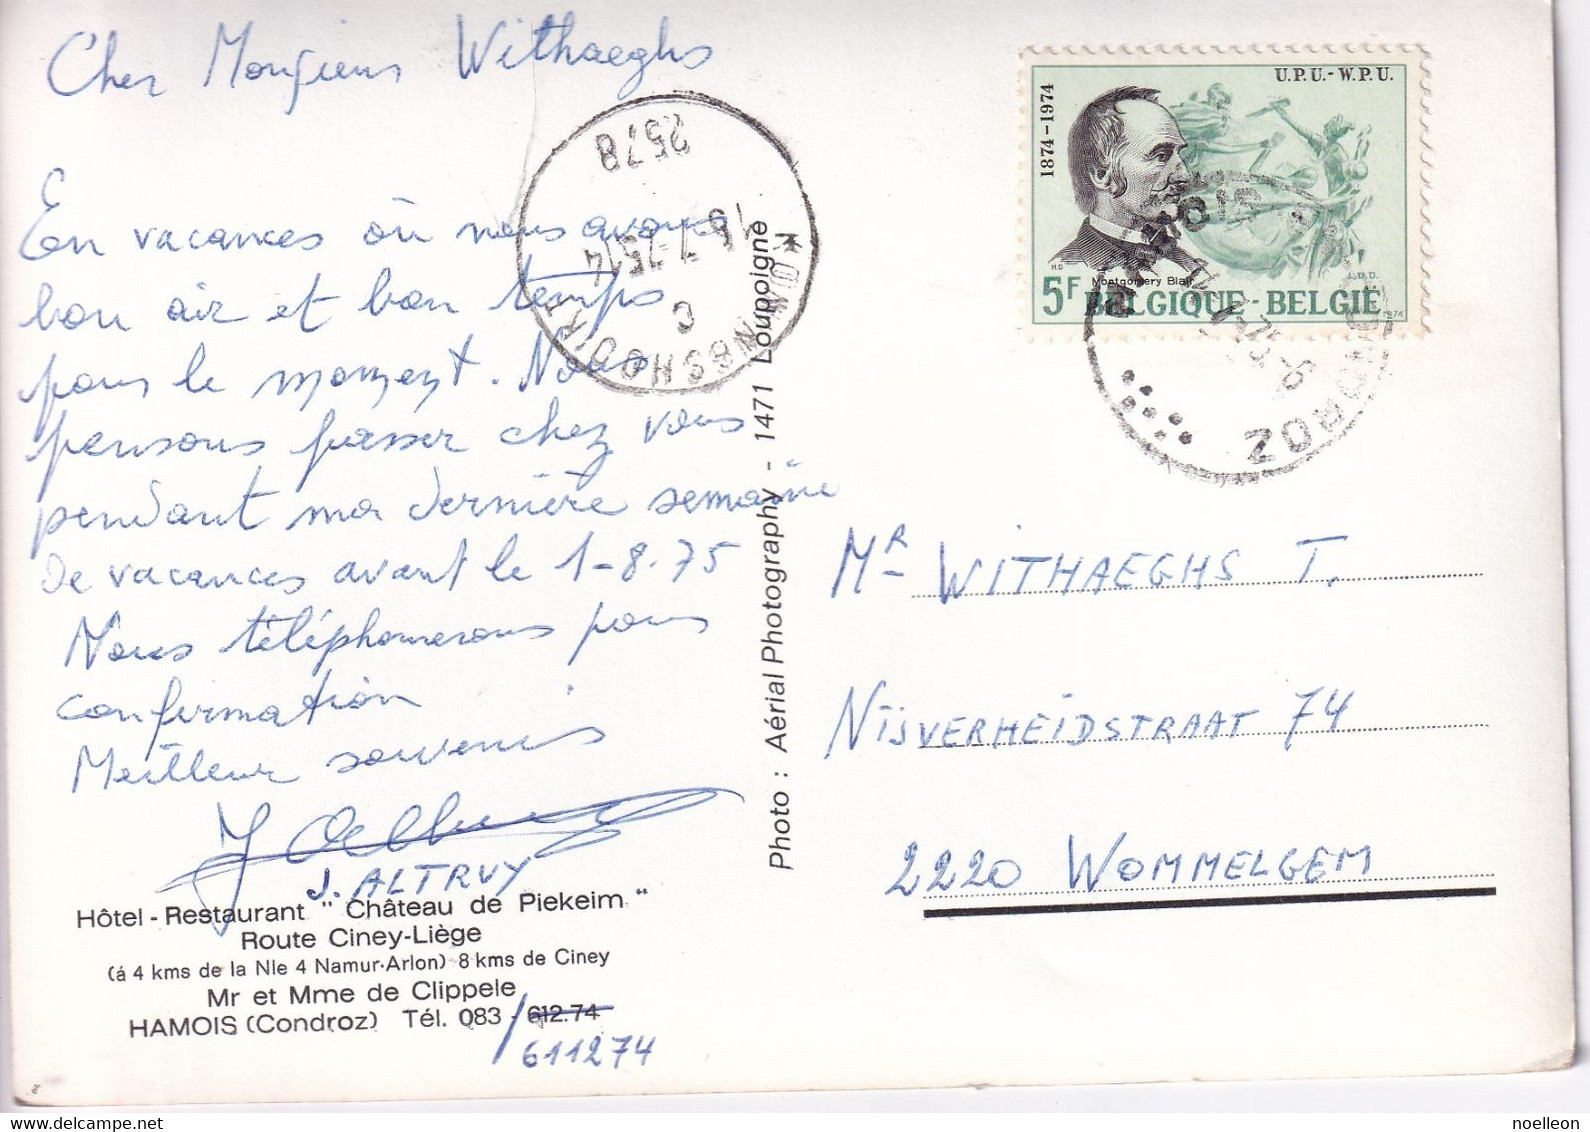 Cher Monsieur Withaeghs
En vacances où nous avons
bon air et bon temps
pour le moment. Nous
pensons passer chez vous
pendant ma dernière semaine
de vacances avant le 1-8-75
Nous téléphonerons pour
confirmation
Meilleur souvenis
J. ALTRUY
Hôtel - Restaurant " Château de Piekeim "
Route Ciney-Liège
(á 4 kms de la Nle 4 Namur-Arlon) 8 kms de Ciney
Mr et Mme de Clippele
HAMOIS (Condroz) Tél. 083 - 612.74
/611274
8
2578
C
Photo : Aérial Photography - 1471 Loupoigne
1874-1974
U.P.U.-W.P.U.
H.D
Montgomery Blair
L.D.D.
5F BELGIQUE-BELGIË
1974
MR WITHAEGHS T.
NIJVERHEIDSTRAAT 74
2220 WOMMELGEM
noelleon
www.delcampe.net